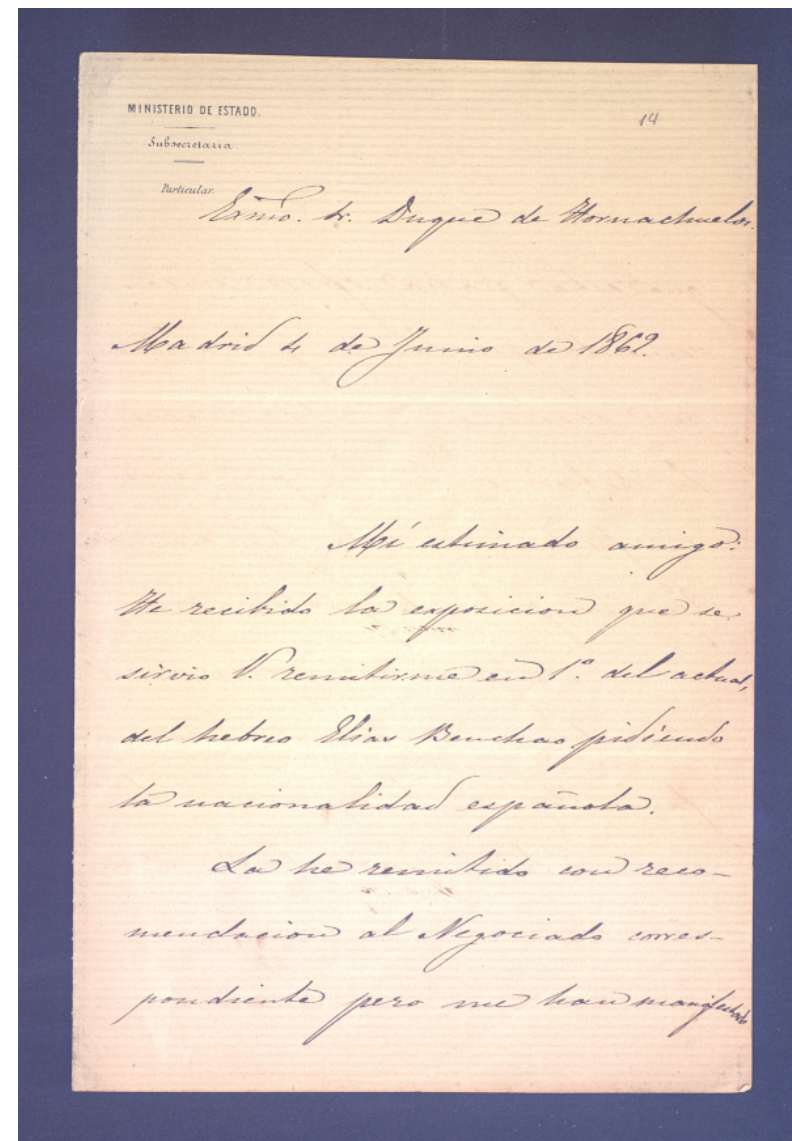 MINISTERIO DE ESTADO.
14
Subsecretaria
Particular.
Exmo. Sr. Duque de Hornachuelos.
Madrid 4 de Junio de 1862.
Mi estimado amigo:
He recibido la exposicion que se
sirvio V. remitirme en 1º. del actual,
del hebreo Elias Benchao pidiendo
la nacionalidad española.
La he remitido con reco-
mendacion al Negociado corres-
pondiente pero me han manifestado